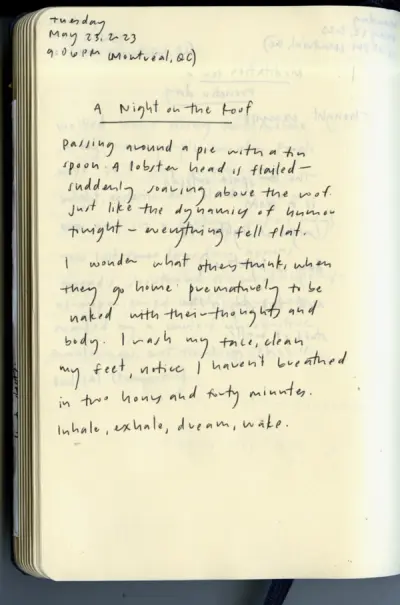 Tuesday
May 23, 2023
9:06PM (Montréal, QC)
A Night on the Roof
Passing around a pie with a tin
spoon. A lobster head is flailed—
suddenly soaring above the roof.
Just like the dynamics of humor
tonight — everything fell flat.
I wonder what others think, when
they go home prematurely to be
naked with their thoughts and
body. I wash my face, clean
my feet, notice I haven't breathed
in two hours and forty minutes.
Inhale, exhale, dream, wake.